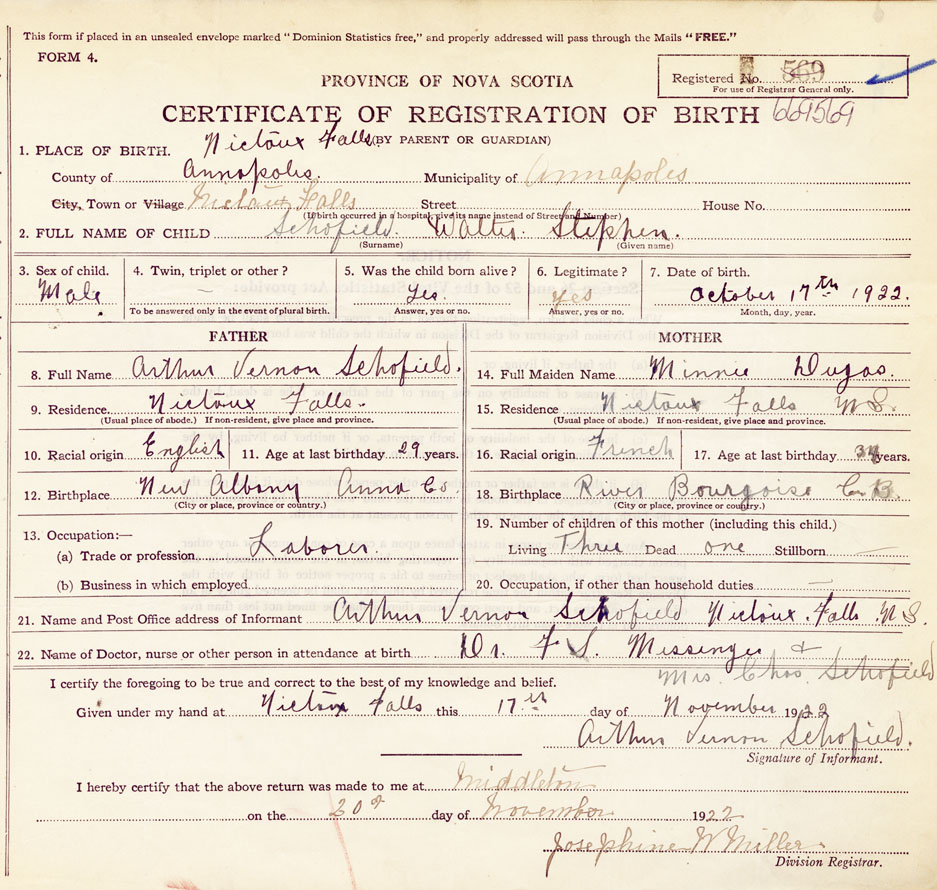 This form if placed in an unsealed envelope marked "Dominion Statistics free," and properly addressed will pass through the Mails "FREE."
FORM 4.
Registered No. 569
For use of Registrar General only.
PROVINCE OF NOVA SCOTIA
CERTIFICATE OF REGISTRATION OF BIRTH 669569
(BY PARENT OR GUARDIAN)
1. PLACE OF BIRTH. Nictoux Falls.
County of Annapolis. Municipality of Annapolis
City, Town or Village Nictaux Falls Street House No.
(If birth occurred in a hospital, give its name instead of Street and Number)
2. FULL NAME OF CHILD Schofield. Walter Stephen.
(Surname) (Given name)
3. Sex of child. 4. Twin, triplet or other? 5. Was the child born alive? 6. Legitimate? 7. Date of birth.
Male — Yes. Yes October 17th 1922.
To be answered only in the event of plural birth. Answer, yes or no. Answer, yes or no. Month, day, year.
FATHER MOTHER
8. Full Name Arthur Vernon Schofield. 14. Full Maiden Name Minnie Dugas.
9. Residence Nictoux Falls. 15. Residence Nictoux Falls N.S.
(Usual place of abode.) If non-resident, give place and province. (Usual place of abode.) If non-resident, give place and province.
10. Racial origin English 11. Age at last birthday 29 years. 16. Racial origin French 17. Age at last birthday years.
12. Birthplace New Albany Anna Co. 18. Birthplace River Bourgoise C.B.
(City or place, province or country.) (City or place, province or country.)
19. Number of children of this mother (including this child.)
13. Occupation:—
(a) Trade or profession Laborer. Living Three Dead one Stillborn —
(b) Business in which employed 20. Occupation, if other than household duties —
21. Name and Post Office address of Informant Arthur Vernon Schofield Nictoux Falls N.S.
22. Name of Doctor, nurse or other person in attendance at birth Dr. F S. Messenger &
Mrs. Chas. Schofield
I certify the foregoing to be true and correct to the best of my knowledge and belief.
Given under my hand at Nictoux Falls this 17th day of November 1922
Arthur Vernon Schofield.
Signature of Informant.
I hereby certify that the above return was made to me at Middleton
on the 20th day of November 1922
Josephine W Miller
Division Registrar.